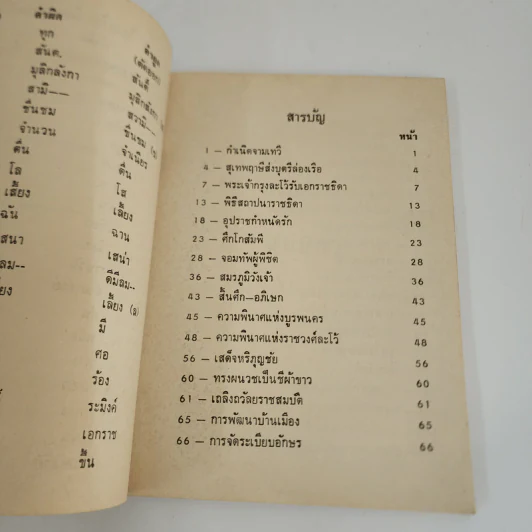 คำผิด
ทุก
สันต.
มุสิกลังกา
สามี--
ชื่นชม
จำนวน
ตื่น
โส
เสี่ยง
ฉัน
คำถูก
สันตี
มุสิกลังกา
สวามี--
ชื่นชม (ช)
จำเนียร
ตื่น
โส
เสี่ยง
ฉาน
เสน่ำ
ดีมีลม--
เลี้ยง (ล)
มี
ศอ
ร้อง
ระมิงค์
เอกราช
ขึ้น
สารบัญ
หน้า
1 — กำเนิดจามเทวี 1
4 — สุเทพฤาษีส่งบุตรีล่องเรือ 4
7 — พระเจ้ากรุงละโว้รับเอกราชธิดา 7
13 — พิธีสถาปนาราชธิดา 13
18 — อุปราชกำหนัดรัก 18
23 — ศึกโกสัมพี 23
28 — จอมทัพผู้พิชิต 28
36 — สมรภูมิวังเจ้า 36
43 — สิ้นศึก-อภิเษก 43
45 — ความพินาศแห่งบูรพนคร 45
48 — ความพินาศแห่งราชวงศ์ละโว้ 48
56 — เสด็จหริภุญชัย 56
60 — ทรงผนวชเป็นชีผ้าขาว 60
61 — เถลิงถวัลยราชสมบัติ 61
65 — การพัฒนาบ้านเมือง 65
66 — การจัดระเบียบอักษร 66